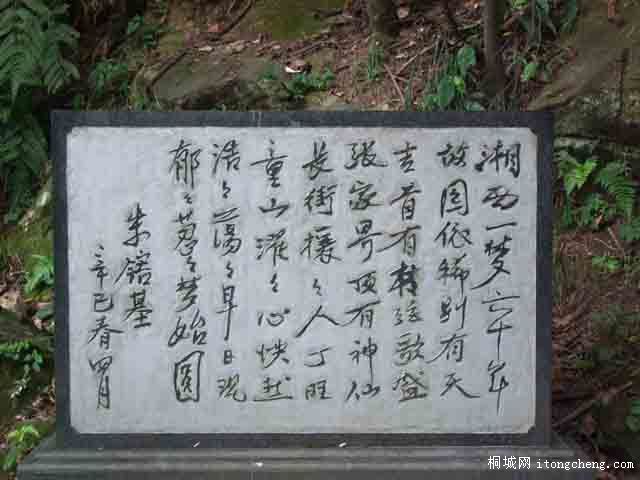 湘西一梦六十年
故园依稀别有天
吉首有校弦歌盛
张家界顶有神仙
长街攘々人丁旺
童山濯々心怅然
浩々荡々早日现
郁々葱々梦始圆
朱镕基
辛巳春四月
桐城网 itongcheng.com